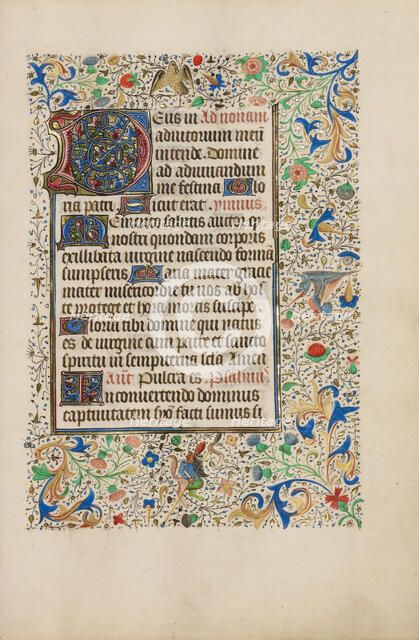 Deus in Ad nonam
adiutorium meū
intende. Domine
ad adiuuandum
me festina Glo
ria patri Sicut erat ymnus
Memento salutis auctor qz
nostri quondam corporis
ex illibata uirgine nascendo forma
sumpseris Maria mater gracie
mater misericordie tu nos ab hos
te protege et hora mortis suscipe
Gloria tibi domine qui natus
es de uirgine cum patre et sancto
spiritu in sempiterna scla Amen
Añt Pulcra es Psalmus
In conuertendo dominus
captiuitatem syō facti sumus si